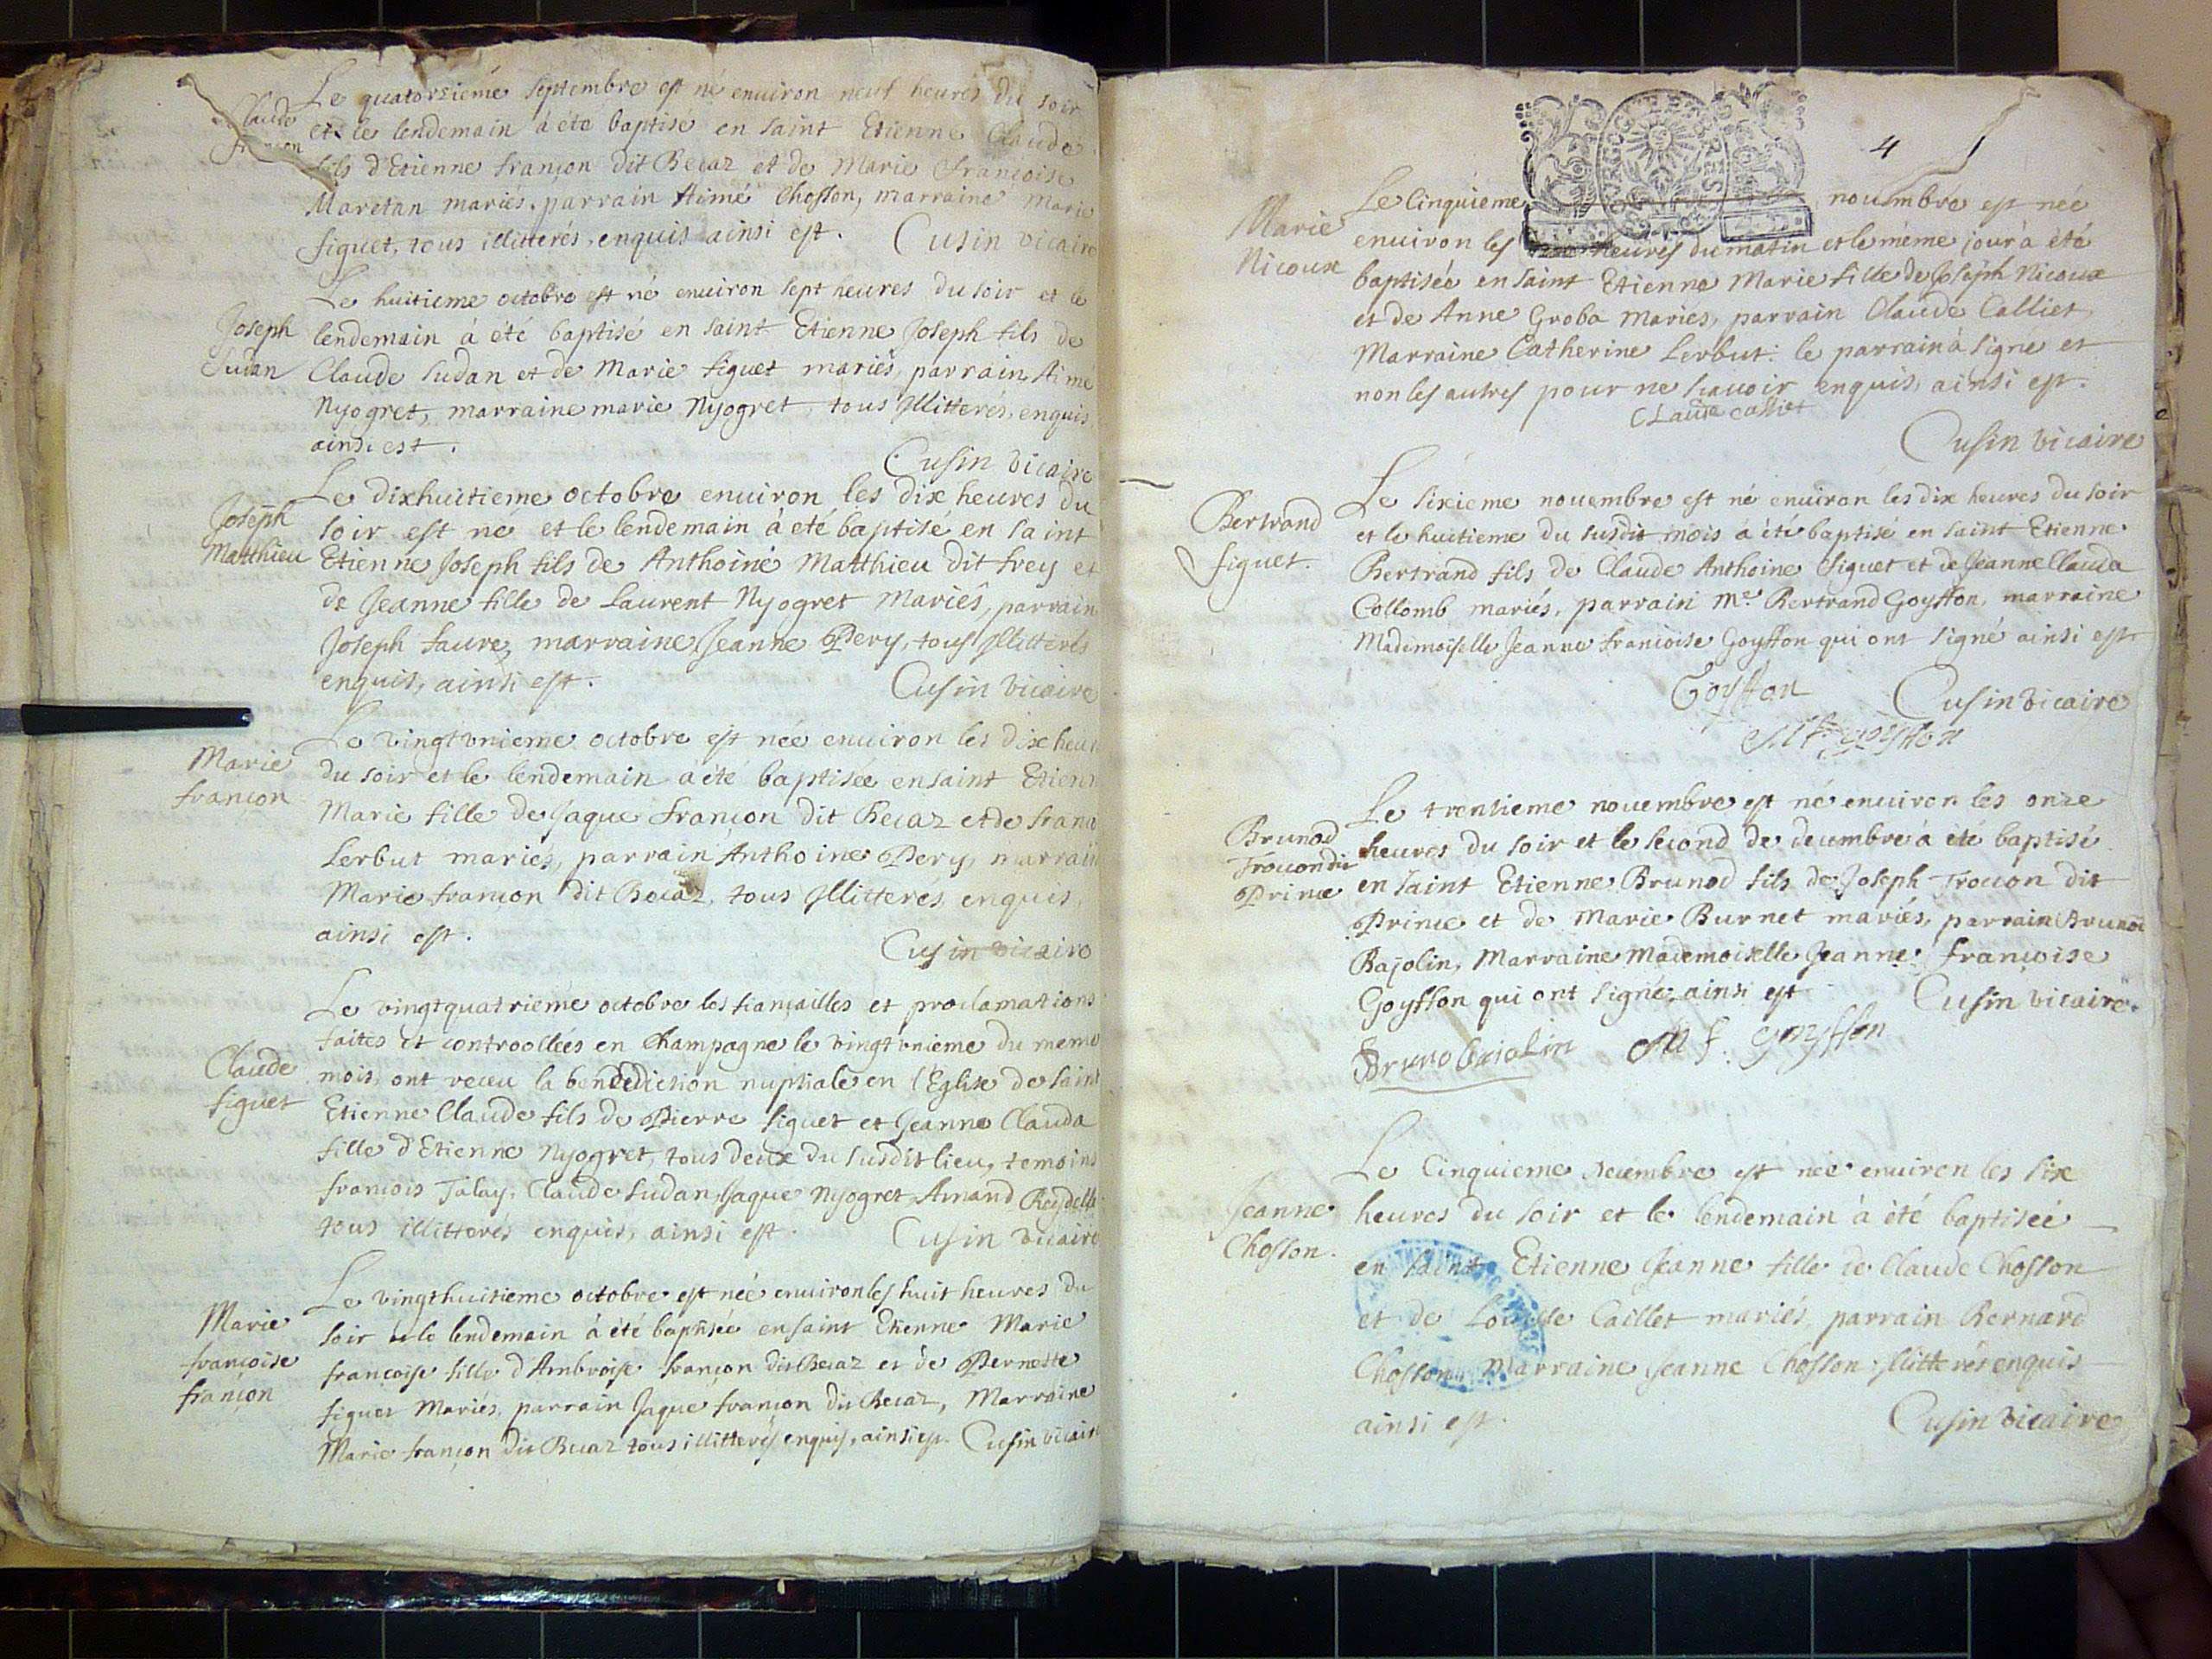 Le quatorzieme septembre est né enuiron neuf heures du soir
Claude
et le lendemain à éte baptisé en saint Etienne Claude
françon
fils d'Etienne françon dit Becaz et de Marie françoise
Maretan mariés. parrain Aimé Chosson, marraine Marie
figuet, tous illitterés, enquis ainsi est. Cusin vicaire
Le huitieme octobre est né enuiron sept heures du soir et le
Joseph
lendemain à été baptisé en saint Etienne Joseph fils de
Sudan
Claude Sudan et de Marie figuet mariés, parrain Aimé
Nyogret, marraine marie Nyogret, tous Jllitterés, enquis
ainsi est.
Cusin vicaire
Le dixhuitieme octobre enuiron les dix heures du
Joseph
soir est né et le lendemain à eté baptisé en saint
Matthieu
Etienne Joseph fils de Anthoine Matthieu dit frey et
de Jeanne fille de Laurent Nyogret Mariés, parrain
Joseph faure, marraine Jeanne Pery, tous Jllitterés
enquis, ainsi est. Cusin vicaire
Le vingtvnieme octobre est née enuiron les dix heur
Marie
du soir et le lendemain à été baptisée en saint Etienn
françon
Marie fille de Jaque françon dit Becaz et de franç
Lerbut mariés, parrain Anthoine Pery, marrain
Marie françon dit Becaz, tous Jllitteres enquis,
ainsi est.
Cusin vicaire
Le vingtquatrieme octobre les fiançailles et proclamations
faites et controollées en Champagne le vingtvnieme du meme
Claude
mois, ont receu la benediction nuptiale en l'Eglise de saint
figuet
Etienne Claude fils de Pierre figuet et Jeanne Clauda
fille d'Etienne Nyogret, tous deux du susdit lieu, temoins
françois Talay, Claude Sudan, Jaque Nyogret, Amand Reydelle
tous illitterés enquis, ainsi est. Cusin vicaire
Le vingthuitieme octobre est née enuiron les huit heures du
Marie
soir le lendemain à été baptisée en saint Etienne Marie
françoise
françoise fille d'Ambroise françon dit Becaz et de Pernette
françon
figuet Mariés, parrain Jaque françon dit Becaz, Marraine
Marie françon dit Becaz tous illitterés enquis, ainsi est. Cusin vicaire
4
Le Cinquieme nouembre est née
Marie
enuiron les heures du matin et le même jour à été
Nicoux
baptisée en saint Etienne Marie fille de Joseph Nicoux
et de Anne Groba Mariés, parrain Claude Calliet,
Marraine Catherine Lerbut: le parrain à signe et
non les autres pour ne sçauoir enquis, ainsi est.
CLaude calliet
Cusin vicaire
Le sixieme nouembre est né enuiron les dix heures du soir
Bertrand
et le huitieme du susdit mois à été baptisé en saint Etienne
figuet.
Bertrand fils de Claude Anthoine figuet et de Jeanne Clauda
Collomb mariés, parrain Me. Bertrand Goyffon, marraine
Mademoiselle Jeanne françoise Goyffon qui ont signé ainsi est
Goyffon Cusin vicaire
goyffon
Le trentieme nouembre est né enuiron les onze
Brunod
heures du soir et le second de decembre à été baptisé
Trocon dit
en saint Etienne Brunod fils de Joseph Trocon dit
Prince
Prince et de Marie Burnet mariés, parrain Brunod
Bajolin, Marraine Mademoiselle Jeanne françoise
Goyffon qui ont signé, ainsi est Cusin vicaire.
Bruno baiolin goyffon
Le Cinquieme decembre est née enuiron les six
Jeanne
heures du soir et le lendemain à été baptisée
Chosson.
en saint Etienne Jeanne fille de Claude Chosson
et de Caillet mariés, parrain Bernard
Chosson Marraine Jeanne Chosson, Jllitterés enquis
ainsi est.
Cusin vicaire